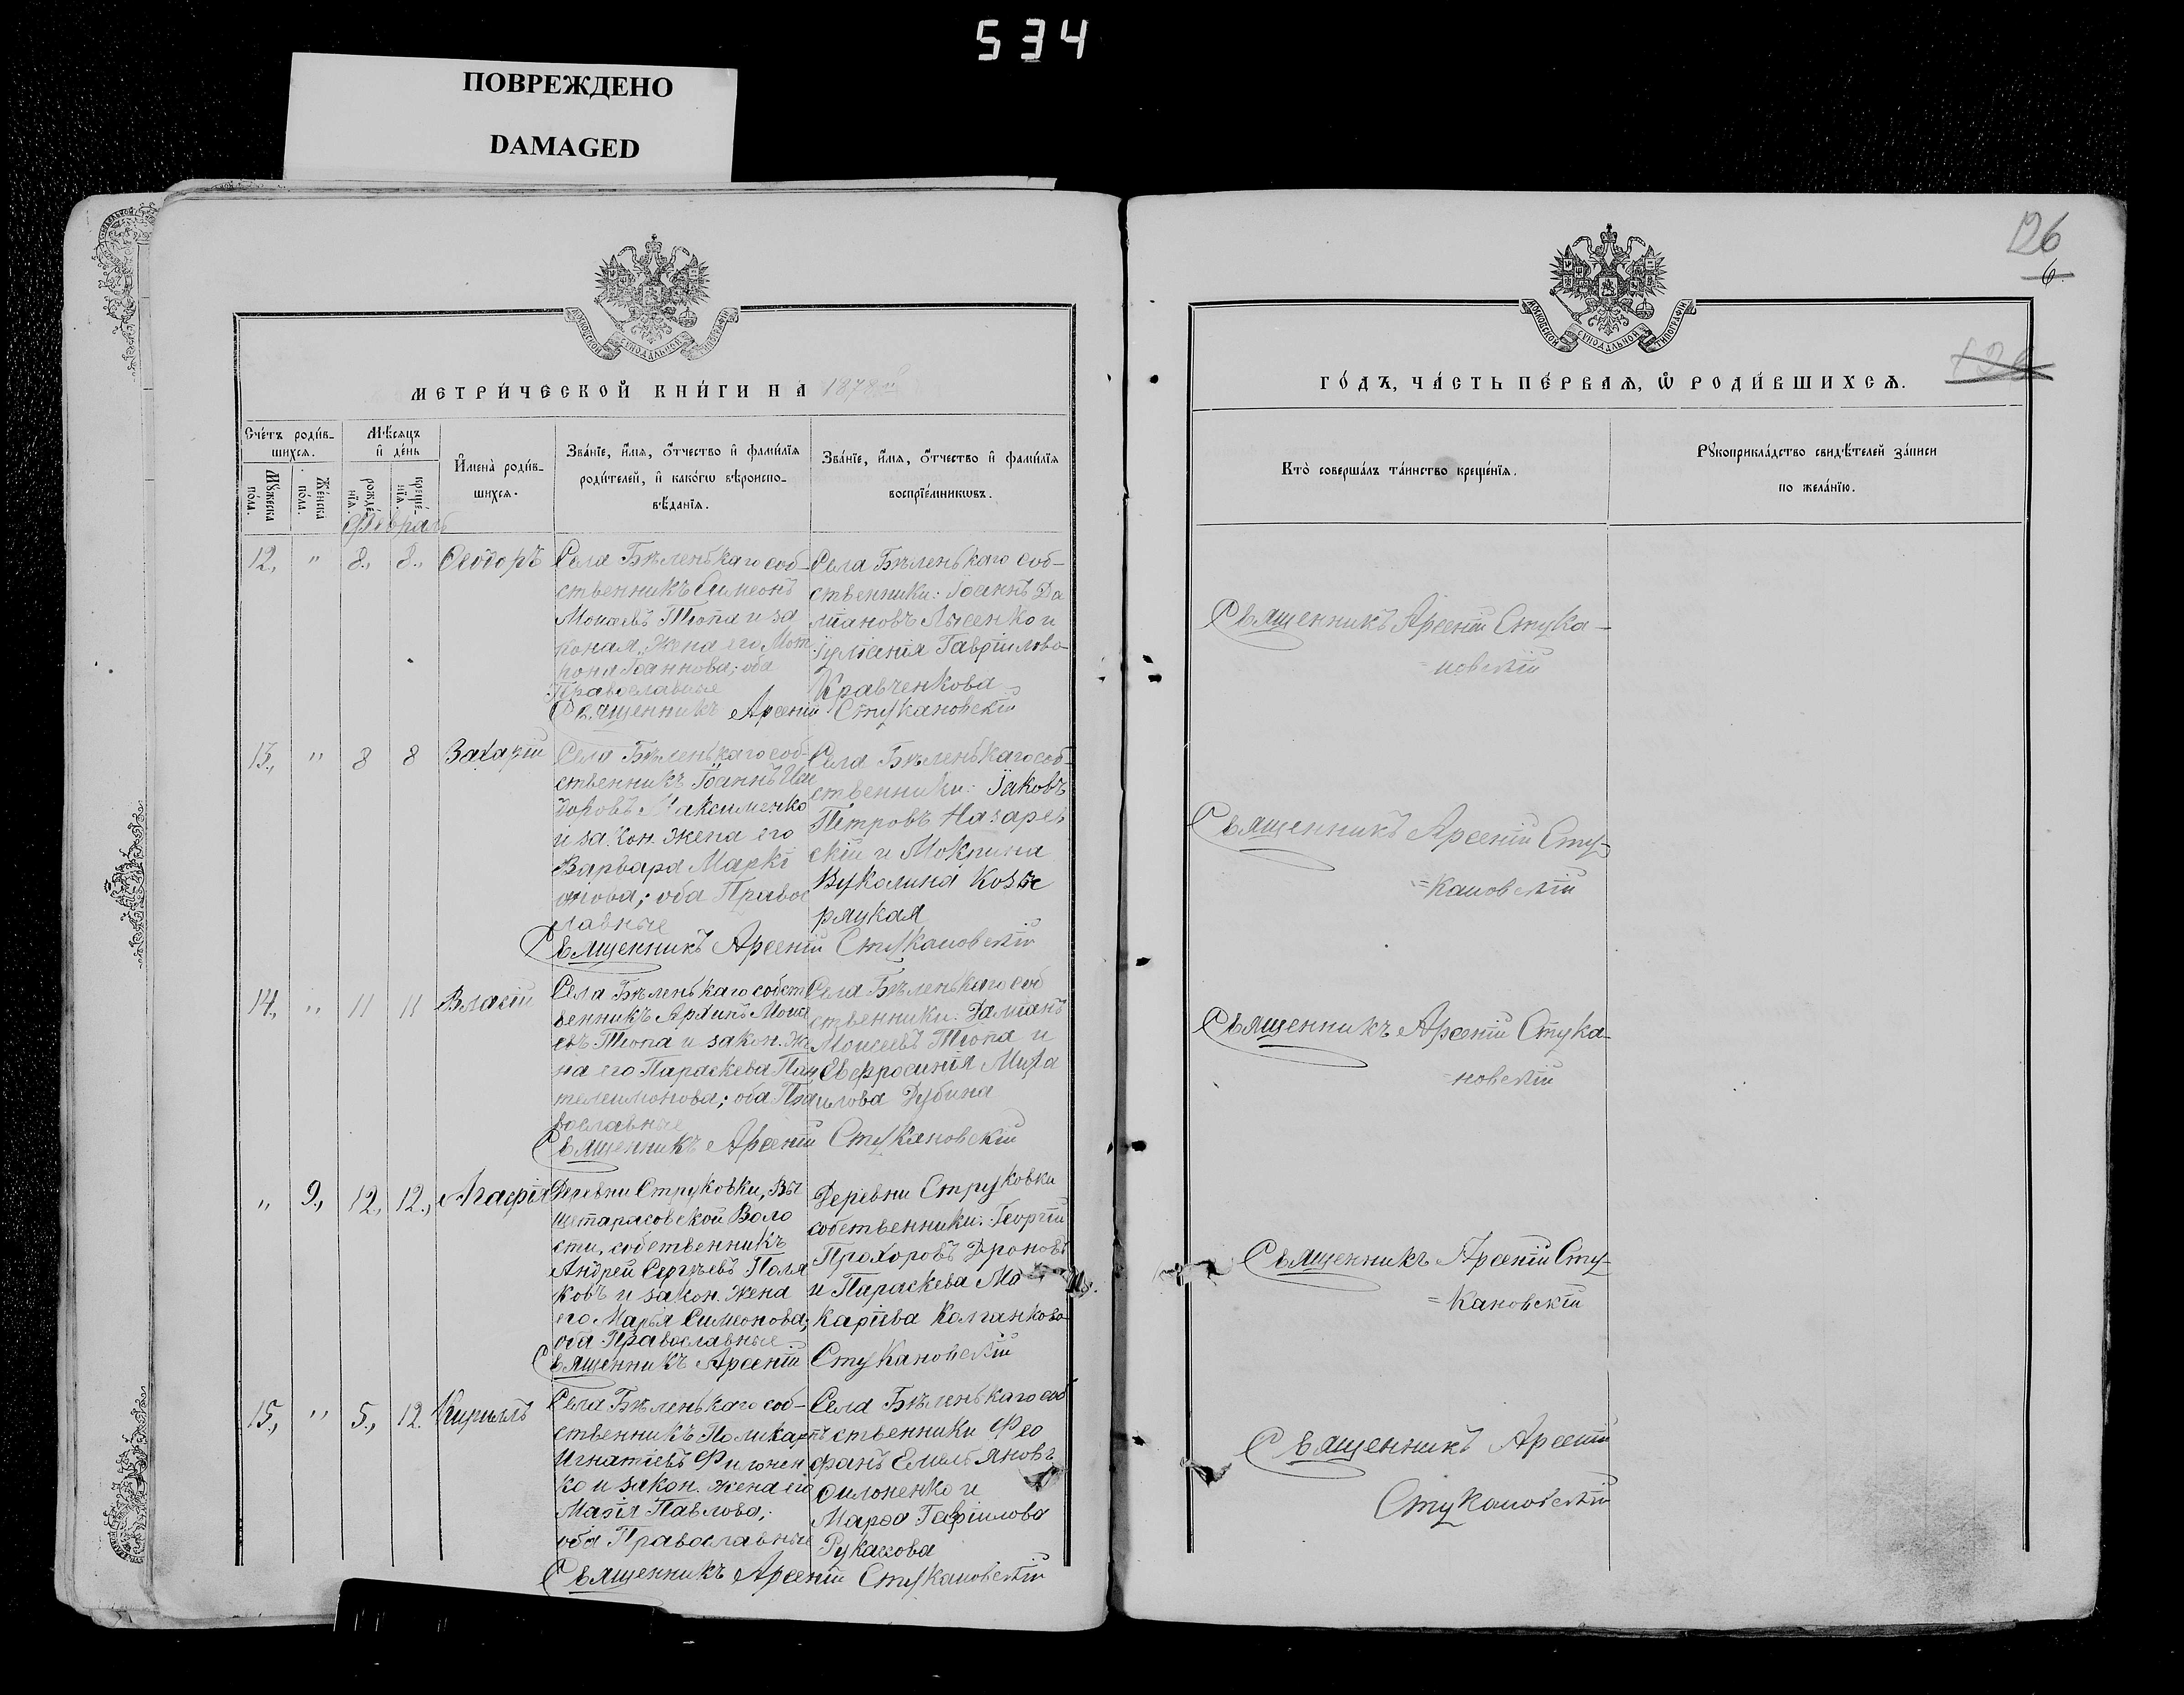 534
ПОВРЕЖДЕНО
DAMAGED
126
6
МОСКОВСКОЙ СѴНОДАЛЬНОЙ ТИПОГРАФІИ
МОСКОВСКОЙ СѴНОДАЛЬНОЙ ТИПОГРАФІИ
МЕТРИ́ЧЕСКОЙ КНИ́ГИ НА 1878
ГО́ДЪ, ЧА́СТЬ ПЕ́РВАѦ, Ѽ РОДИ́ВШИХСѦ.
Сче́тъ роди́в-
шихсѧ.
Мꙋ́жеска
по́ла.
Же́нска
по́ла.
Мѣ́сѧцъ
и҆ де́нь
рожде́-
нїѧ.
креще́-
нїѧ.
Февраль
И҆мена̀ роди́в-
шихсѧ.
Зва́нїе, и҆́мѧ, ѻ҆́тчество и҆ фами́лїѧ
роди́телей, и҆ како́гѡ вѣроиспо-
вѣ́данїѧ.
Зва́нїе, и҆́мѧ, ѻ҆́тчество и҆ фами́лїѧ
воспрїе́мникѡвъ.
Кто̀ соверша́лъ та́инство креще́нїѧ.
Рꙋкоприкла́дство свидѣ́телей за́писи
по жела́нїю.
12., " 8., 8., Ѳеодоръ
Села Бѣленькаго соб-
ственникъ Симеонъ
Моисеевъ Тюпа и за
конная жена его Мат
рона Іоаннова; оба
Православные
Села Бѣленькаго соб-
ственники: Іоаннъ Да
міановъ Лысенко и
Іуліанія Гавріилова
Кравченкова
Священникъ Арсеній Стукановскій
Священникъ Арсеній Стука-
=новскій
13., " 8 8 Захарій
Села Бѣленькаго соб-
ственникъ Іоаннъ Иси
доровъ Максименко
и закон. жена его
Варвара Маркі
анова; оба Правос
лавные
Села Бѣленькаго соб-
ственники: Іаковъ
Петровъ Назарев
скій и Мокрина
Вуколина
Священникъ Арсеній Стукановскій
Священникъ Арсеній Сту-
=кановскій
14., " 11 11 Власій
Села Бѣленькаго собст
венникъ Архипъ Моисе
евъ Тюпа и закон. же
на его Параскева Пан
телеимонова; оба Пра
вославные
Села Бѣленькаго соб
ственники: Даміанъ
Моисеевъ Тюпа и
Евфросинія Миха
илова Дубина
Священникъ Арсеній Стукановскій
Священникъ Арсеній Стука-
=новскій
" 9., 12., 12., Агафія
Деревни Струковки, Вы
щетарасовской Воло
сти, собственникъ
Андрей Сергѣевъ Поля
ковъ и закон. жена
его Марья Симеонова;
оба Православные
Деревни Струковки
собственники: Георгій
Прохоровъ Дроновъ
и Параскева Ма
каріева Колганкова
Священникъ Арсеній Стукановскій
Священникъ Арсеній Сту-
=кановскій
15., " 5., 12. Кириллъ
Села Бѣленькаго соб-
ственникъ Поликарпъ
Игнатіевъ Филонен
ко и закон. жена его
Марія Павлова;
оба Православные
Села Бѣленькаго соб
ственники Фео
фанъ Емельяновъ
Филоненко и
Марфа Гавріилова
Священникъ Арсеній Стукановскій
Священникъ Арсеній
Стукановскій